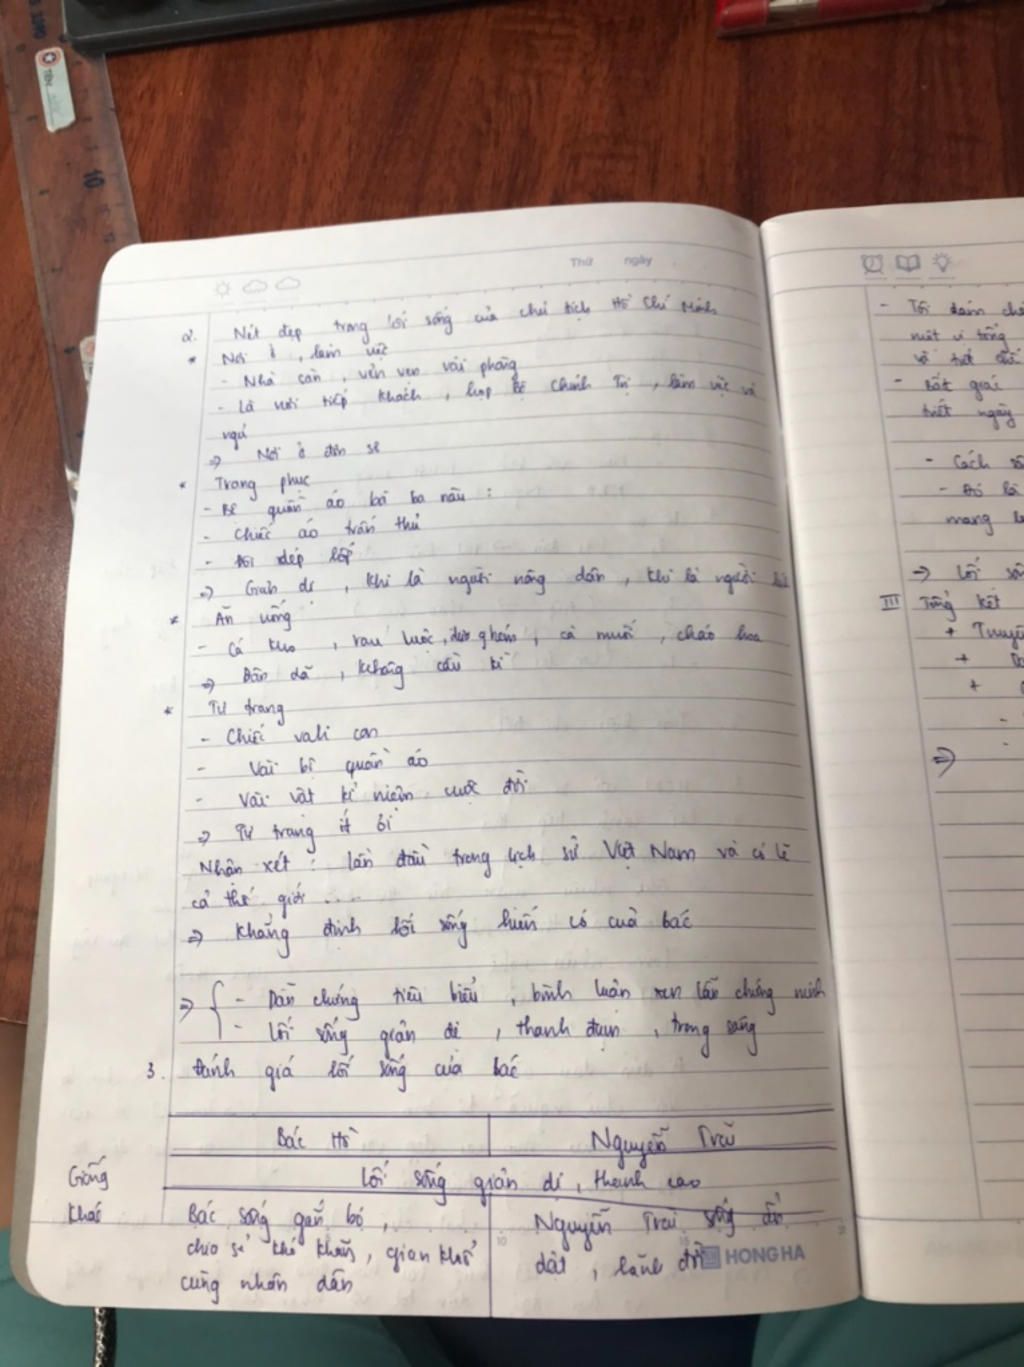 Thứ ngày
2. Nét đẹp trong lối sống của chủ tịch Hồ Chí Minh
* Nơi ở, làm việc
- Nhà sàn, vẻn vẹn vài phòng
- Là nơi tiếp khách, họp Bộ Chính Trị, làm việc và
ngủ
=> Nơi ở đơn sơ
* Trang phục
- Bộ quần áo bà ba nâu :
- Chiếc áo trấn thủ
- Đôi dép lốp
=> Giản dị, khi là người nông dân, khi là người
* Ăn uống
- Cá kho, rau luộc, dưa ghém, cà muối, cháo hoa
=> Dân dã, không cầu kì
* Tư trang
- Chiếc vali con
- Vài bộ quần áo
- Vài vật kỉ niệm cuộc đời
=> Tư trang ít ỏi
Nhận xét : lần đầu trong lịch sử Việt Nam và có lẽ
cả thế giới ....
=> Khẳng định lối sống hiếm có của bác
=> { - Dẫn chứng tiêu biểu, bình luận xen lẫn chứng minh
- lối sống giản dị, thanh đạm, trong sáng
3. Đánh giá lối sống của bác
Bác Hồ Nguyễn Trãi
Giống lối sống giản dị, thanh cao
Khác Bác sống gắn bó,
chia sẻ khó khăn, gian khổ
cùng nhân dân
Nguyễn Trãi sống ẩn
dật, lánh đời
HONG HA
- Tôi dám
một vị tổng
- Bất giác
tiết ngày
- Cách
- Đó là
mang
=> lối
III Tổng kết
+
+
+
=>
TÊN
10